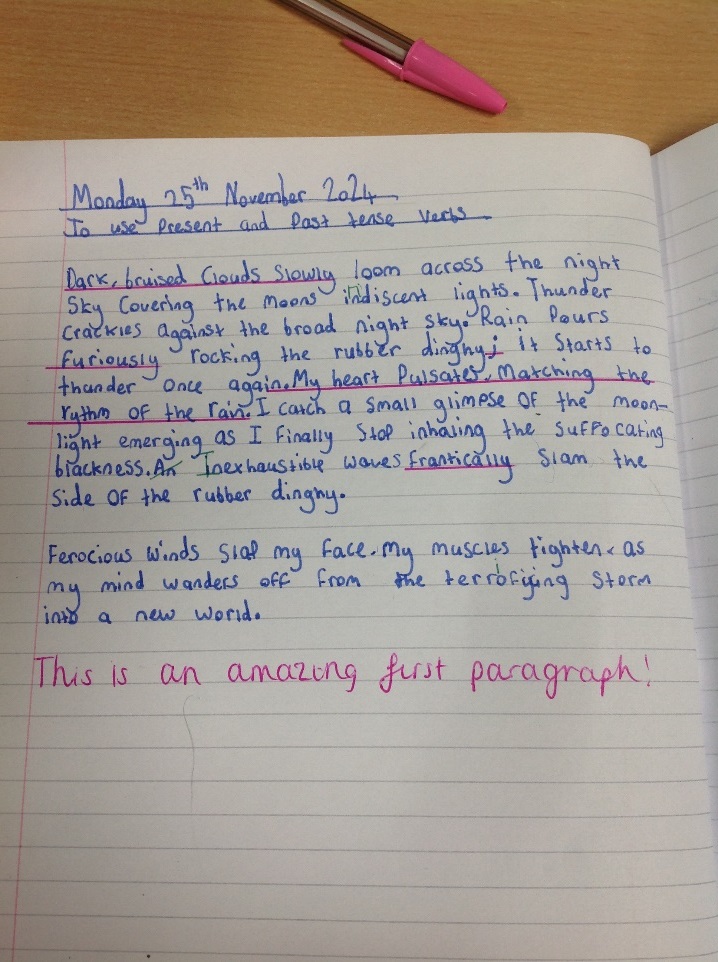 Monday 25th November 2024
To use Present and Past tense verbs
Dark, bruised Clouds Slowly loom across the night
Sky Covering the moons indiscent lights. Thunder
crackles against the broad night sky. Rain Pours
furiously rocking the rubber dinghy; it Starts to
thunder once again. My heart Pulsates, Matching the
rythm of the rain. I catch a small glimpse of the moon-
light emerging as I finally Stop inhaling the suffocating
blackness. An Inexhaustible waves frantically Slam the
Side of the rubber dinghy.
Ferocious winds Slap my face. My muscles tighten, as
my mind wanders off from the terrofiying Storm
into a new world.
This is an amazing first paragraph!